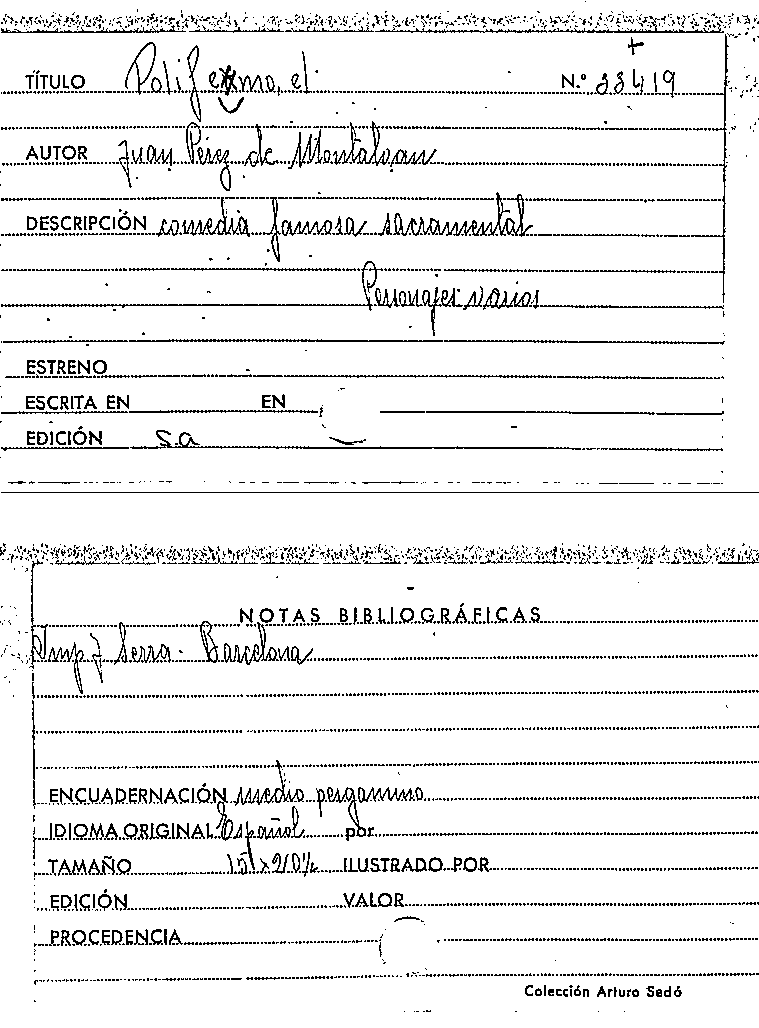 +
TÍTULO Polifemo, el N.º 33419
AUTOR Juan Pérez de Montalván
DESCRIPCIÓN comedia famosa sacramental
Personajes varios
ESTRENO
ESCRITA EN EN
EDICIÓN s.a
NOTAS BIBLIOGRÁFICAS
Imp J Serra - Barcelona
ENCUADERNACIÓN medio pergamino
IDIOMA ORIGINAL Español por
TAMAÑO ILUSTRADO POR
EDICIÓN VALOR
PROCEDENCIA
Colección Arturo Sedó